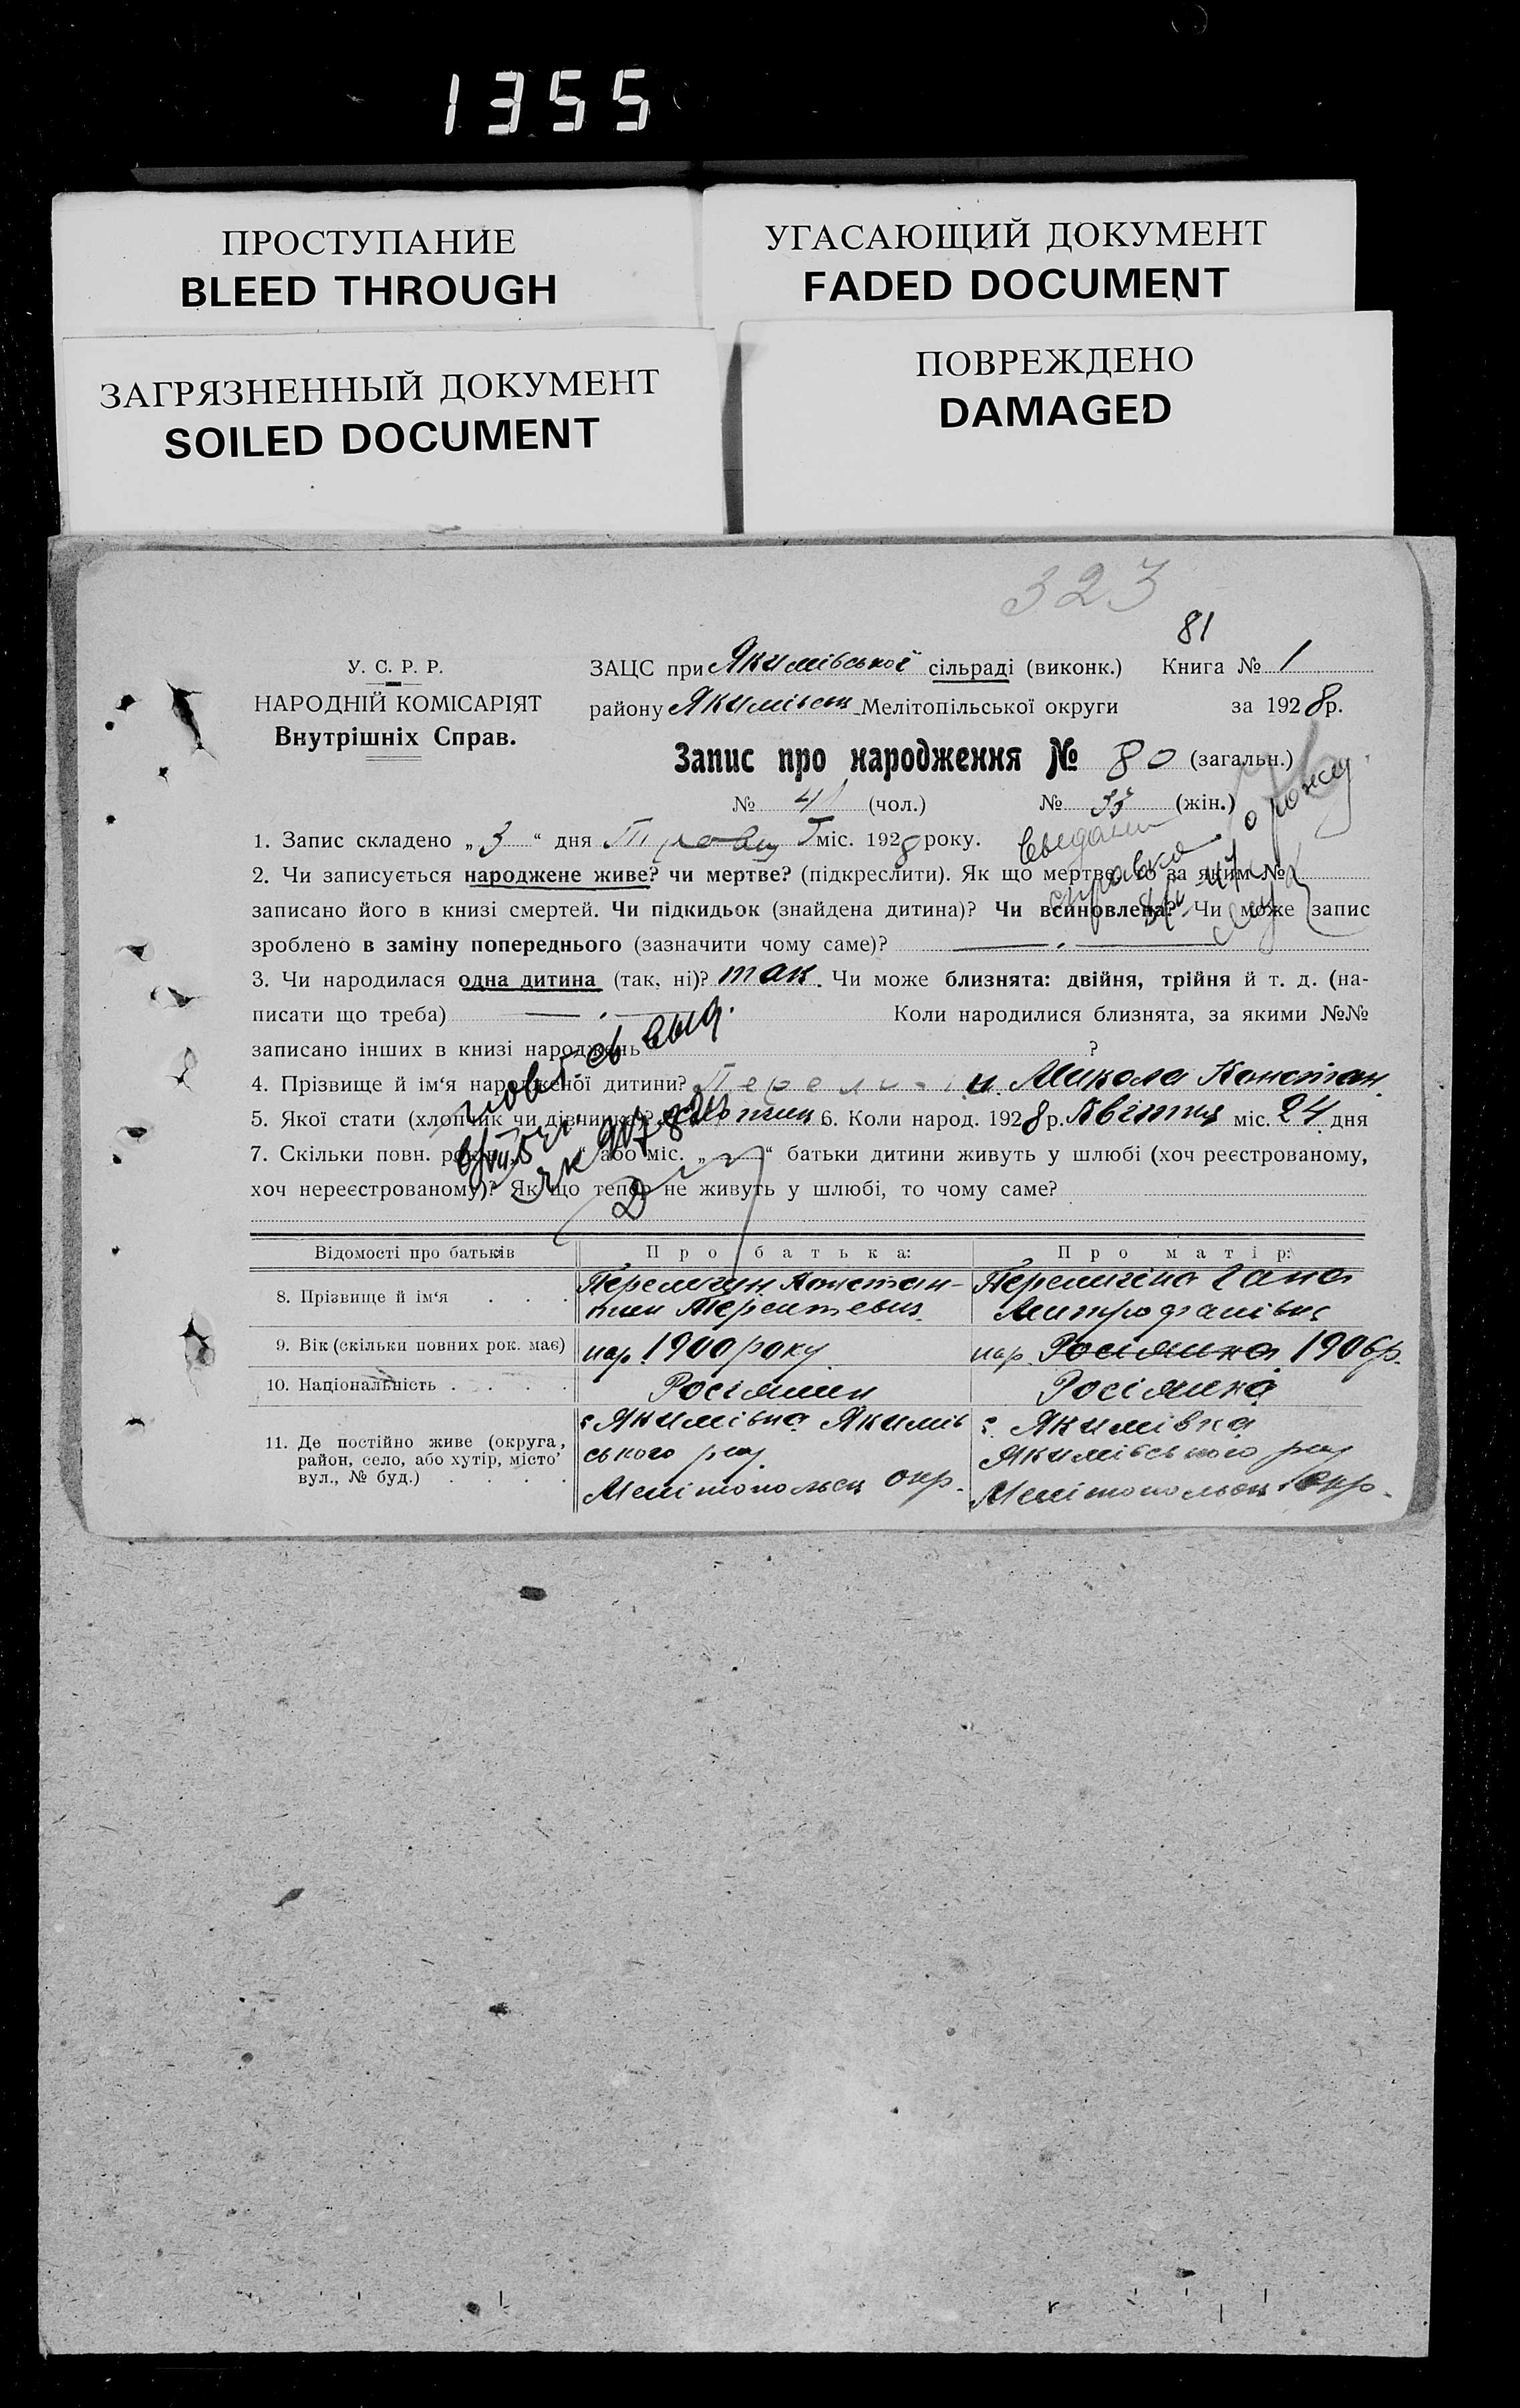 1355
ПРОСТУПАНИЕ
BLEED THROUGH
УГАСАЮЩИЙ ДОКУМЕНТ
FADED DOCUMENT
ЗАГРЯЗНЕННЫЙ ДОКУМЕНТ
SOILED DOCUMENT
ПОВРЕЖДЕНО
DAMAGED
323
81
У. С. Р. Р.
НАРОДНІЙ КОМІСАРІЯТ
Внутрішніх Справ.
ЗАЦС при Якимівської сільраді (виконк.) Книга № 1
району Якимівськ Мелітопільської округи за 1928 р.
Запис про народження № 80 (загальн.)
№ 41 (чол.) № (жін.)
1. Запис складено „3“ дня міс. 1928 року.
справка о рожд
2. Чи записується народжене живе? чи мертве? (підкреслити). Як що мертве, то за яким №
записано його в книзі смертей. Чи підкидьок (знайдена дитина)? Чи всиновлена? Чи може запис
зроблено в заміну попереднього (зазначити чому саме)?
3. Чи народилася одна дитина (так, ні)? так. Чи може близнята: двійня, трійня й т. д. (на-
писати що треба) Коли народилися близнята, за якими №№
записано інших в книзі народжень ?
4. Прізвище й ім‘я народженої дитини? Микола Констан.
5. Якої стати (хлопчик чи дівчинка)? 6. Коли народ. 1928 р. Квітня міс. 24 дня
7. Скільки повн. рок. “ або міс. „ “ батьки дитини живуть у шлюбі (хоч реєстрованому,
хоч нереєстрованому)? Як що тепер не живуть у шлюбі, то чому саме?
Відомості про батьків Про батька: Про матір:
8. Прізвище й ім‘я . . . Перелигин Констан- Перелигіна Гана
тин Терентевич Митрофанівна
9. Вік (скільки повних рок. має) нар. 1900 року нар. Росіянка 1906 р.
10. Національність . . . . Росіянин Росіянка
11. Де постійно живе (округа, район, село, або хутір, місто’ вул., № буд.) . . . .
с. Якимівка Якимів
ського рай
Мелітопольськ окр.
с. Якимівка
Якимівського рай
Мелітопольськ окр.